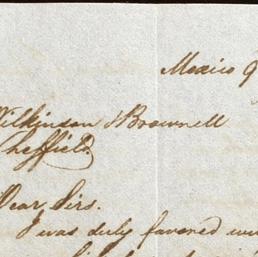 Mexico 9
Wilkinson & Brownell
Sheffield
Dear Sirs.
I was duly favored